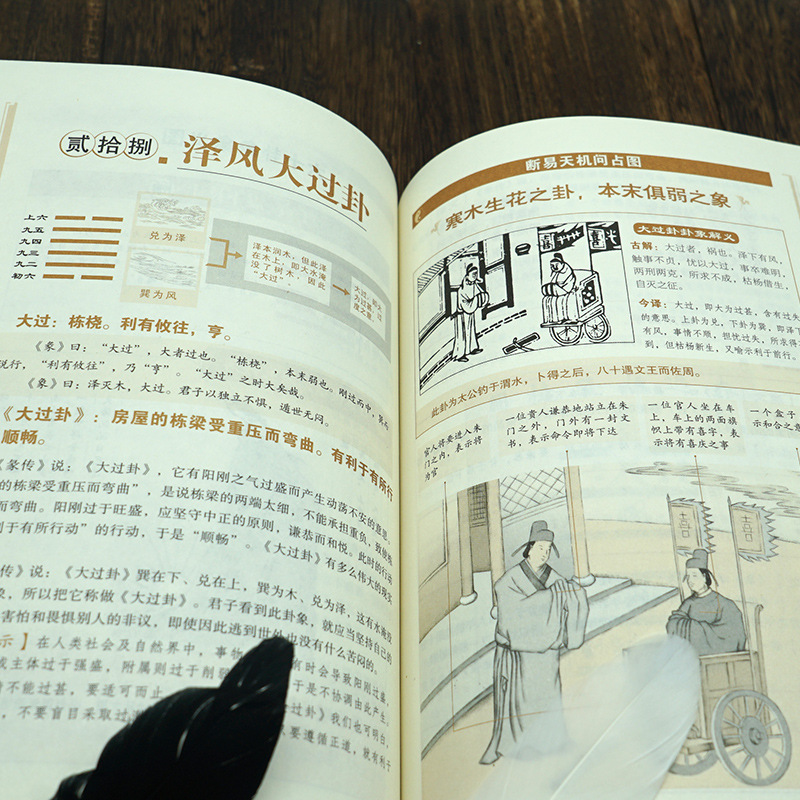 贰拾捌
泽风大过卦
上六
九五
九四
九三
九二
初六
兑为泽
巽为风
泽本润木，但此泽
在木上，即大水淹
没了树木，因此
“大过”。
大过：栋桡。利有攸往，亨。
《彖》曰：“大过”，大者过也。“栋桡”，本末弱也。刚过而中，巽而
说行，“利有攸往”，乃“亨”。“大过”之时大矣哉。
《象》曰：泽灭木，大过。君子以独立不惧，遁世无闷。
《大过卦》：房屋的栋梁受重压而弯曲。有利于有所行
顺畅。
《彖传》说：《大过卦》，它有阳刚之气过盛而产生动荡不安的意思。
的栋梁受重压而弯曲”，是说栋梁的两端太细，不能承担重负，致使
而弯曲。阳刚过于旺盛，应坚守中正的原则，谦恭而和悦。此时的行动
利于有所行动”的行动，于是“顺畅”。《大过卦》有多么伟大的现实
传》说：《大过卦》巽在下、兑在上，巽为木、兑为泽，这有水淹没
象，所以把它称做《大过卦》。君子看到此卦象，就应当坚持自己的
害怕和畏惧别人的非议，即使因此逃到世外也没有什么苦闷的。
示】在人类社会及自然界中，事物 有时会导致阳刚过盛，
或主体过于强盛，附属则过于削弱 于是不协调由此产生。
情不能过甚，要适可而止 过卦》我们也可明白，
，不要盲目采取过 要遵循正道，就有利于
断易天机问占图
寒木生花之卦，本末俱弱之象
大过卦卦象解义
古解：大过者，祸也。泽下有风，
触事不贞，忧以大过，事卒难明，
两刑两克，所求不成，枯杨借生，
自灭之征。
今译：大过，即大为过甚，含有过失
的意思。上卦为兑，下卦为巽，即泽下
有风，事情不顺，担忧过失，所求得不
到，但枯杨新生，又喻示利于前行。
此卦为太公钓于渭水，卜得之后，八十遇文王而佐周。
官人将要进入朱
门之内，表示将
为官
一位贵人谦恭地站立在朱
门之外，门外有一封文
书，表示命令即将下达
一位官人坐在车
上，车上的两面旗
帜上带有喜字，表
示将有喜庆之事
一个盒子
示和合之意
囍
囍